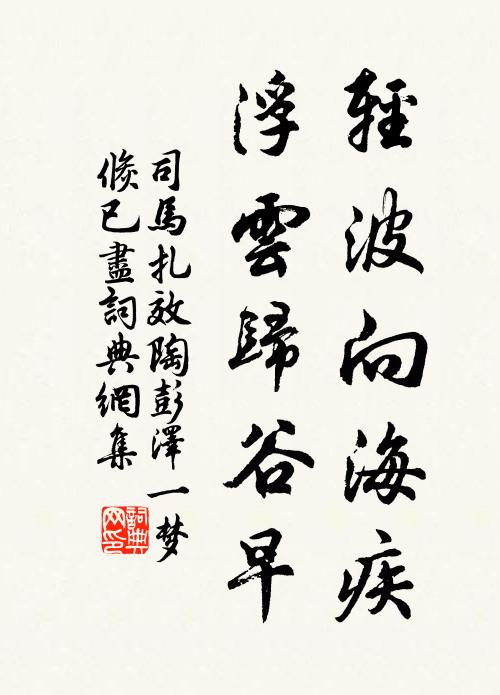 輕波向海疾
浮雲歸谷早
司馬扎效陶彭澤一梦
倐已盡詞典網集
詞典
网印